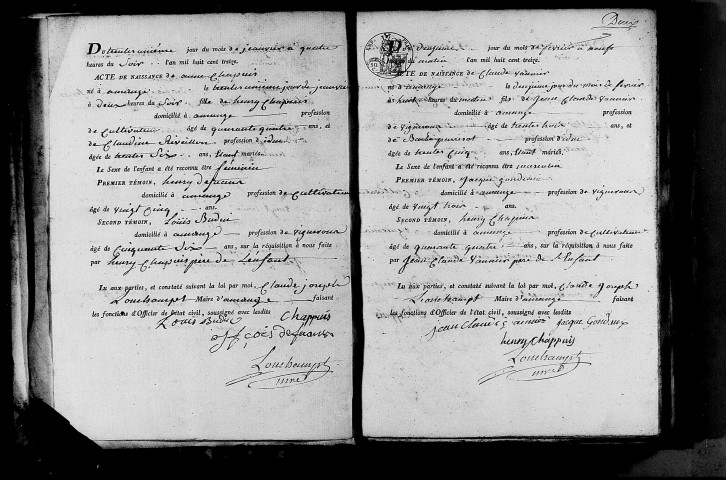 Du trente unième jour du mois de jeanvier à quatre
heures du Soir l'an mil huit cent treize.
ACTE DE NAISSANCE de anne Chapuis
né à amange le trente unième jour de jeanvier
à deux heures du Soir, fille de henry Chapuis
domicilié à amange profession
de Cultivateur âgé de quarante quatre ans, et
de Claudine profession d'idem
âgée de trente Six ans, Etant mariés.
Le Sexe de l'enfant a été reconnu être féminin
PREMIER TÉMOIN, henry
domicilié à amange profession de Cultivateur
âgé de vingt Cinq ans.
SECOND TÉMOIN, Louis
domicilié à amange profession de vigneron
âgé de Cinquante Six ans, sur la réquisition à nous faite
par henry Chapuis père de L'enfant
Lu aux parties, et constaté suivant la loi par moi, Claude joseph
Louchampt Maire d'amange faisant
les fonctions d'Officier de l'état civil, soussigné avec lesdits
Louis Chappuis
Louchampt
mre
Deux
Du Deuxième jour du mois de fevrier à neuf
heures du matin l'an mil huit cent treize.
ACTE DE NAISSANCE de Claude Vannier
né d'amange le Deuxième jour du mois de fevrier
à huit heures du matin fils de Jean Claude Vannier
domicilié à amange profession
de vigneron âgé de trente huit ans, et
de profession d'idem
âgée de trente Cinq ans, Etant mariés.
Le Sexe de l'enfant a été reconnu être masculin
PREMIER TÉMOIN, Jacque
domicilié à amange profession de vigneron
âgé de vingt trois ans.
SECOND TÉMOIN, henry Chapuis
domicilié à amange profession de Cultivateur
âgé de quarante quatre ans, sur la réquisition à nous faite
par Jean Claude Vannier père de l'Enfant
Lu aux parties, et constaté suivant la loi par moi, Claude joseph
Louchampt Maire d'amange faisant
les fonctions d'Officier de l'état civil, soussigné avec lesdits
jean Claude Jacque
henry Chappuis
Louchampt
mre